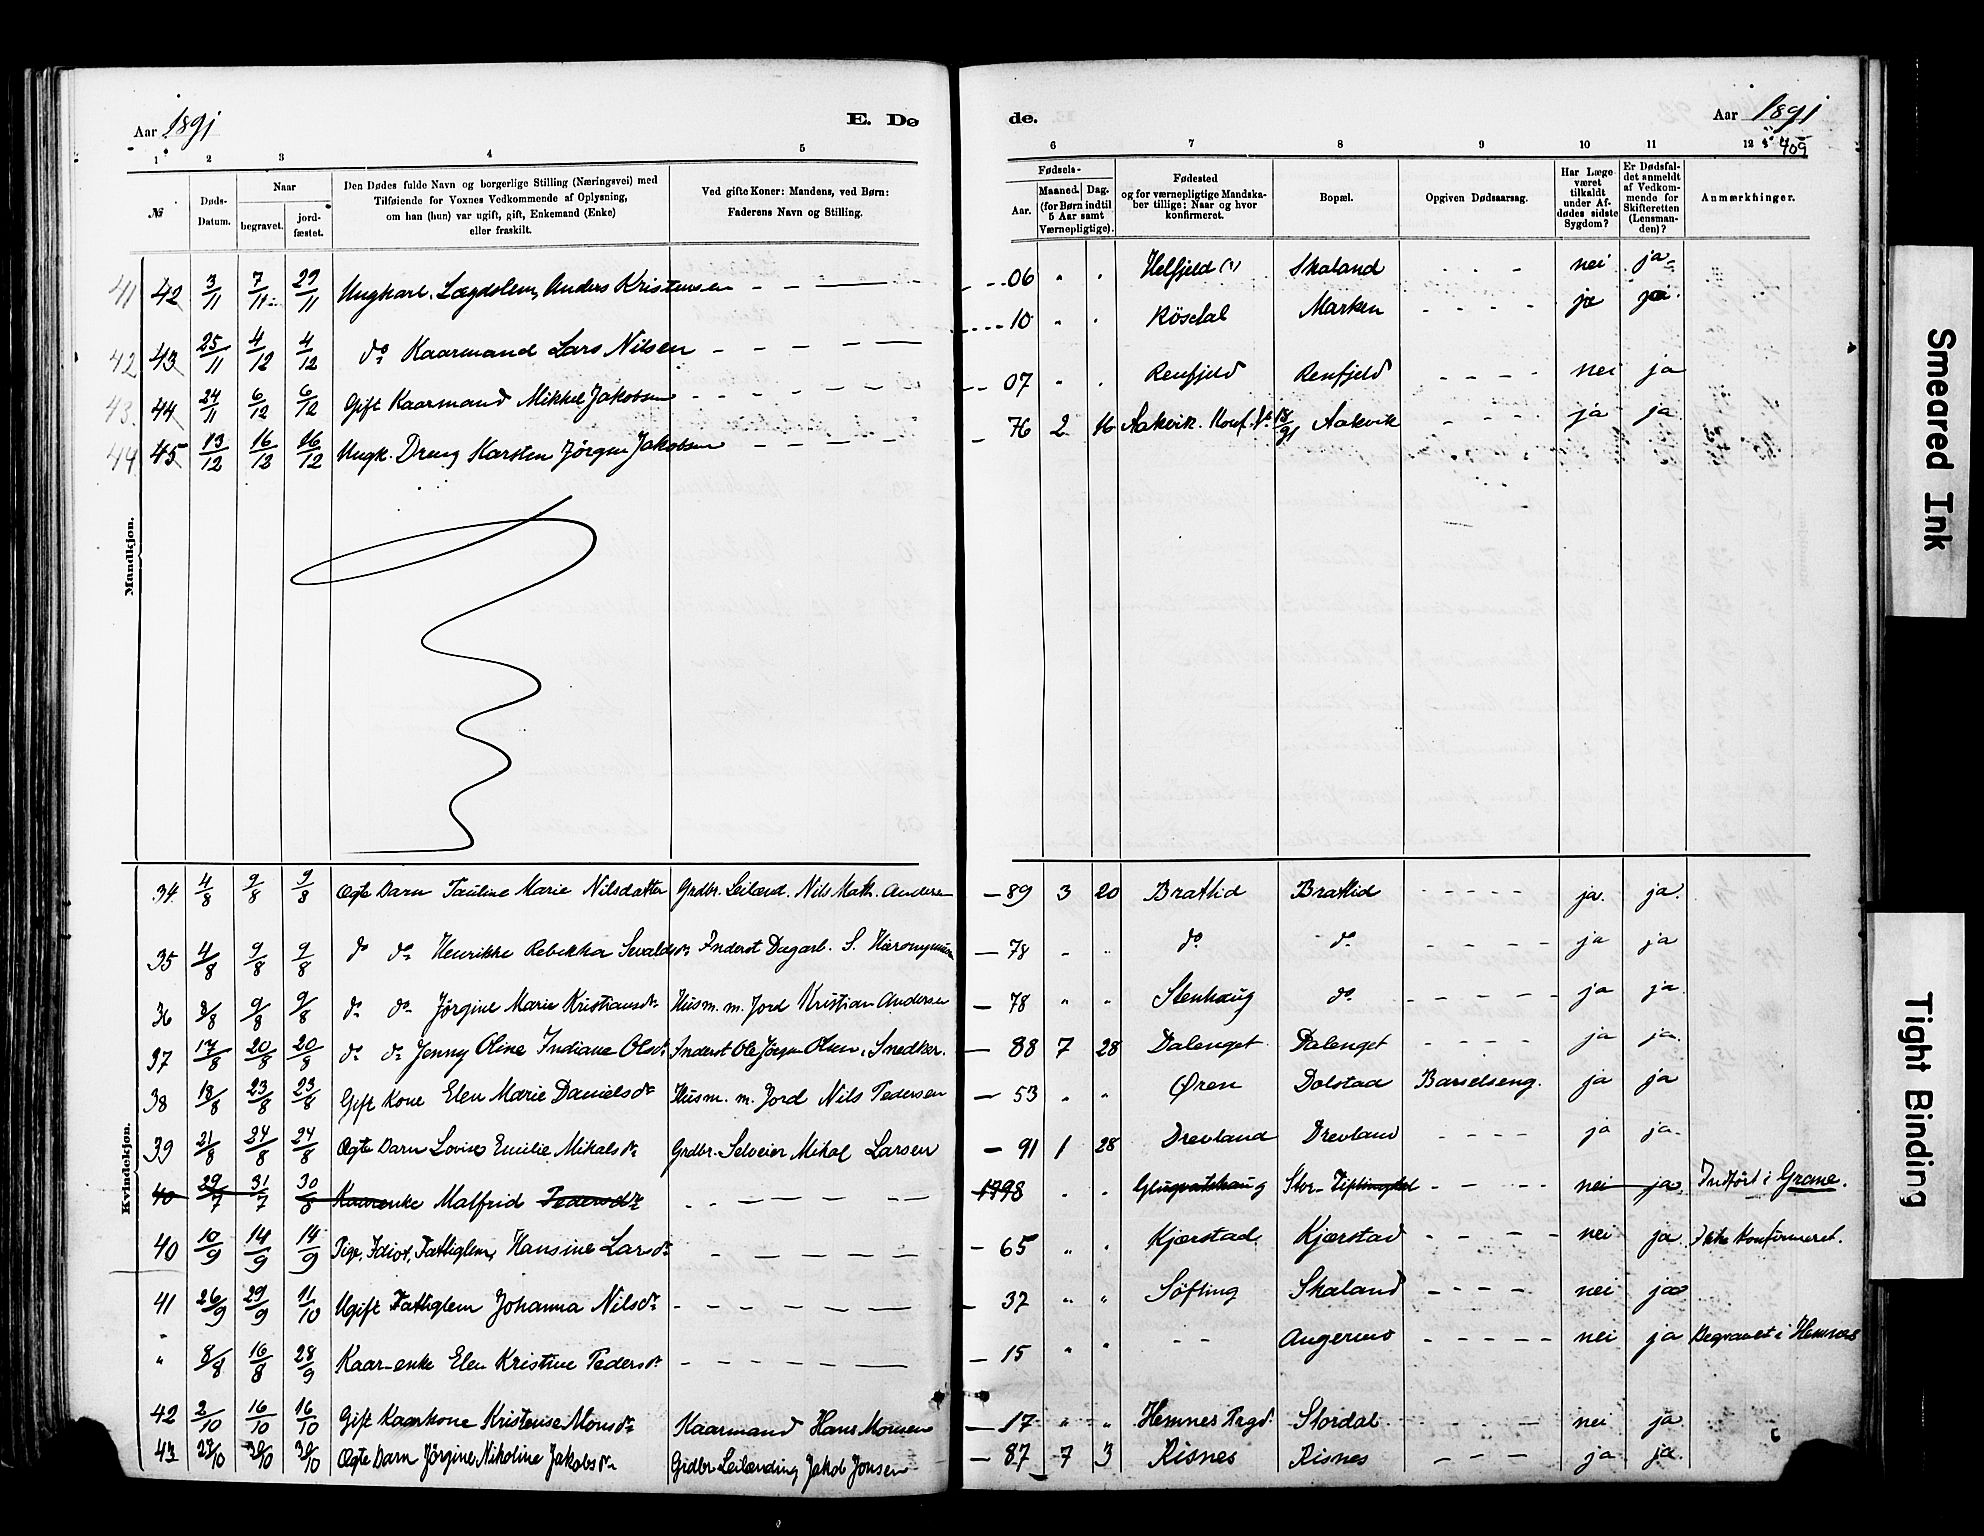 Aar 1891
E. Dø
de.
Aar 1891
409
1 2 3 4 5 6 7 8 9 10 11 12
№
Døds-Datum.
Naar
begravet.
jord-fæstet.
Den Dødes fulde Navn og borgerlige Stilling (Næringsvei) med
Tilføiende for Voxnes Vedkommende af Oplysning,
om han (hun) var ugift, gift, Enkemand (Enke)
eller fraskilt.
Ved gifte Koner: Mandens, ved Børn:
Faderens Navn og Stilling.
Fødsels-
Aar.
Maaned. Dag.
(for Børn indtil
5 Aar samt
Værnepligtige).
Fødested
og for værnepligtige Mandska-
ber tillige: Naar og hvor
konfirmeret.
Bopæl.
Opgiven Dødsaarsag.
Har Læge
været
tilkaldt
under Af-
dødes sidste
Sygdom?
Er Dødsfal-
det anmeldt
af Vedkom-
mende for
Skifteretten
(Lensman-
den)?
Anmærkninger.
Mandkjøn.
41 42 3/11 7/11 29/11 Ungkarl. Lægdslem, Anders Kristensen - - — - - 06 " " Helfjeld (?) Skaland - - - nei ja
42 43 25/11 4/12 4/12 do Kaarmand Lars Nilsen - - - - 10 " " Røsdal Marken - - - - ja ja
43 44 24/11 6/12 6/12 Gift Kaarmand Mikkel Jakobsen - - - - 07 " " Renfjeld Renfjeld - - - - nei ja
44 45 13/12 16/12 16/12 Ungk. Dreng Karsten Jørgen Jakobsen - - - - 76 2 16 Aakvik. Konf. 18/91 Aakvik - - - ja ja
Kvindekjøn.
34 4/8 9/8 9/8 Ægte Barn Pauline Marie Nilsdatter Grdbr. Leilænd. Nils Math. Andersen — 89 3 20 Brattlid Brattlid - - - - - ja ja
35 4/8 9/8 9/8 do do Henrikke Rebekka Sivaldsdr Inderst Dagarb. S. Hieronymus — 78 " " do do - - - - - ja ja
36 8/8 9/8 9/8 do do Jørgine Marie Kristiansdr Husm. m. Jord Kristian Andersen — 78 " " Stenhaug do - - - - - ja ja
37 17/8 20/8 20/8 do do Jenny Oline Indiane Olsdr Inderst Ole Jørgen Olsen, Snedker. — 88 7 28 Dalenget Dalenget - - - - ja ja
38 18/8 23/8 23/8 Gift Kone Elen Marie Danielsdr Husm. m. Jord Nils Pedersen — 53 " " Øren Dolstad Barselseng. ja ja
39 21/8 24/8 24/8 Ægte Barn Lovise Emilie Mikalsdr Grdbr. Selveier Mikal Larsen — 91 1 28 Drevland Drevland - - - - ja ja
40 29/7 31/7 30/8 Kaarenke Malfrid Pedersdr - - - - - 1798 " " Stor- - - - - nei ja Indført i Grane.
40 10/9 14/9 14/9 Pige, Idiot, Fattiglem, Hansine Larsdr - - - - - — 65 " " Kjærstad Kjærstad - - - - nei ja Ikke konfirmeret.
41 26/9 29/9 11/10 Ugift Fattiglem Johanna Nilsdr - - - - - — 37 " " Søfting Skaland - - - - nei ja
" 8/8 16/8 28/9 Kaar-enke Elen Kristine Pedersdr - - - - - — 15 " " - - Angermo - - - - - nei ja Begravet i Hemnes
42 2/10 16/10 16/10 Gift Kaarkone Kristense Monsdr Kaarmand Hans Monsen — 17 " " Hemnes Prgd. Stordal - - - - nei ja
43 23/10 30/10 30/10 Ægte Barn Jørgine Nikoline Jakobsdr Grdbr Leilænding Jakob Jonsen — 87 7 3 Risnes Risnes - - - ja ja
Smeared Ink
Tight Binding